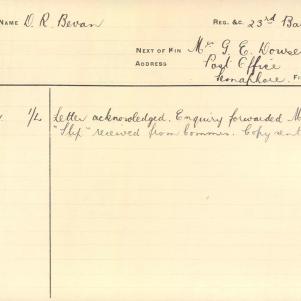 NAME D. R. Bevan REG. &C. 23rd Ba
NEXT OF KIN Mr G. E. Dowse
ADDRESS Post Office
F
1/2 Letter acknowledged. Enquiry forwarded M
"Slip" received from Commes. Copy sent